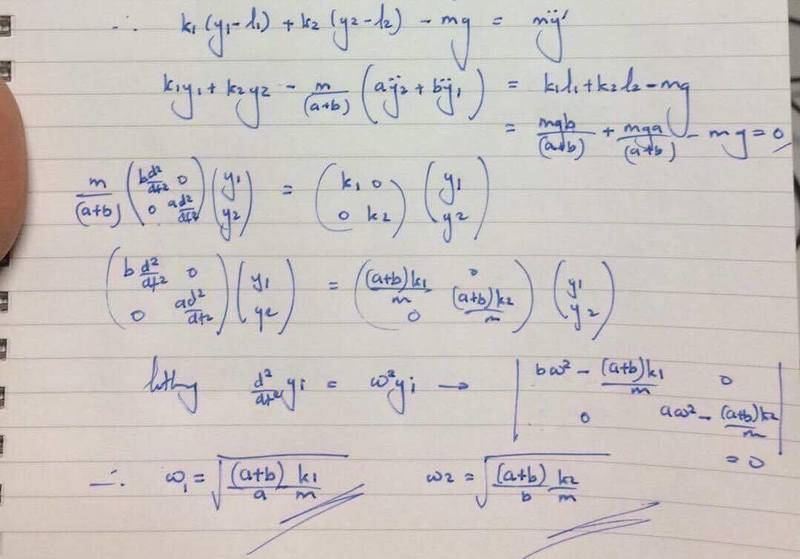 ∴ k₁(y₁-l₁) + k₂(y₂-l₂) - mg = mÿ
k₁y₁ + k₂y₂ - m/(a+b) (aÿ₂ + bÿ₁) = k₁l₁ + k₂l₂ - mg
= mgb/(a+b) + mga/(a+b) - mg = 0
m/(a+b) (b d²/dt² 0; 0 a d²/dt²) (y₁; y₂) = (k₁ 0; 0 k₂) (y₁; y₂)
(b d²/dt² 0; 0 a d²/dt²) (y₁; y₂) = ((a+b)k₁/m 0; 0 (a+b)k₂/m) (y₁; y₂)
d²/dt² yᵢ = ω²yᵢ → | bω² - (a+b)k₁/m 0; 0 aω² - (a+b)k₂/m | = 0
∴ ω₁ = √((a+b)/a k₁/m) ω₂ = √((a+b)/b k₂/m)